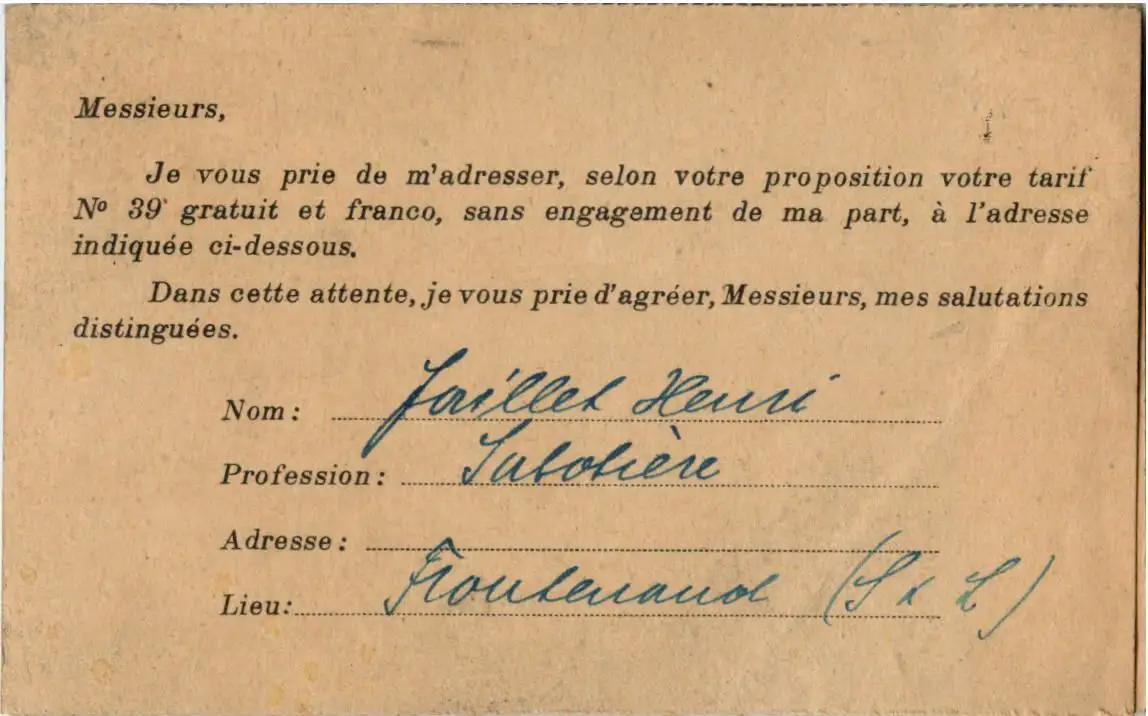 Messieurs,
Je vous prie de m'adresser, selon votre proposition votre tarif
Nº 39 gratuit et franco, sans engagement de ma part, à l'adresse
indiquée ci-dessous.
Dans cette attente, je vous prie d'agréer, Messieurs, mes salutations
distinguées.
Nom: Jaillet Henri
Profession: Sabotière
Adresse:
Lieu: Frontenaud (S & L)